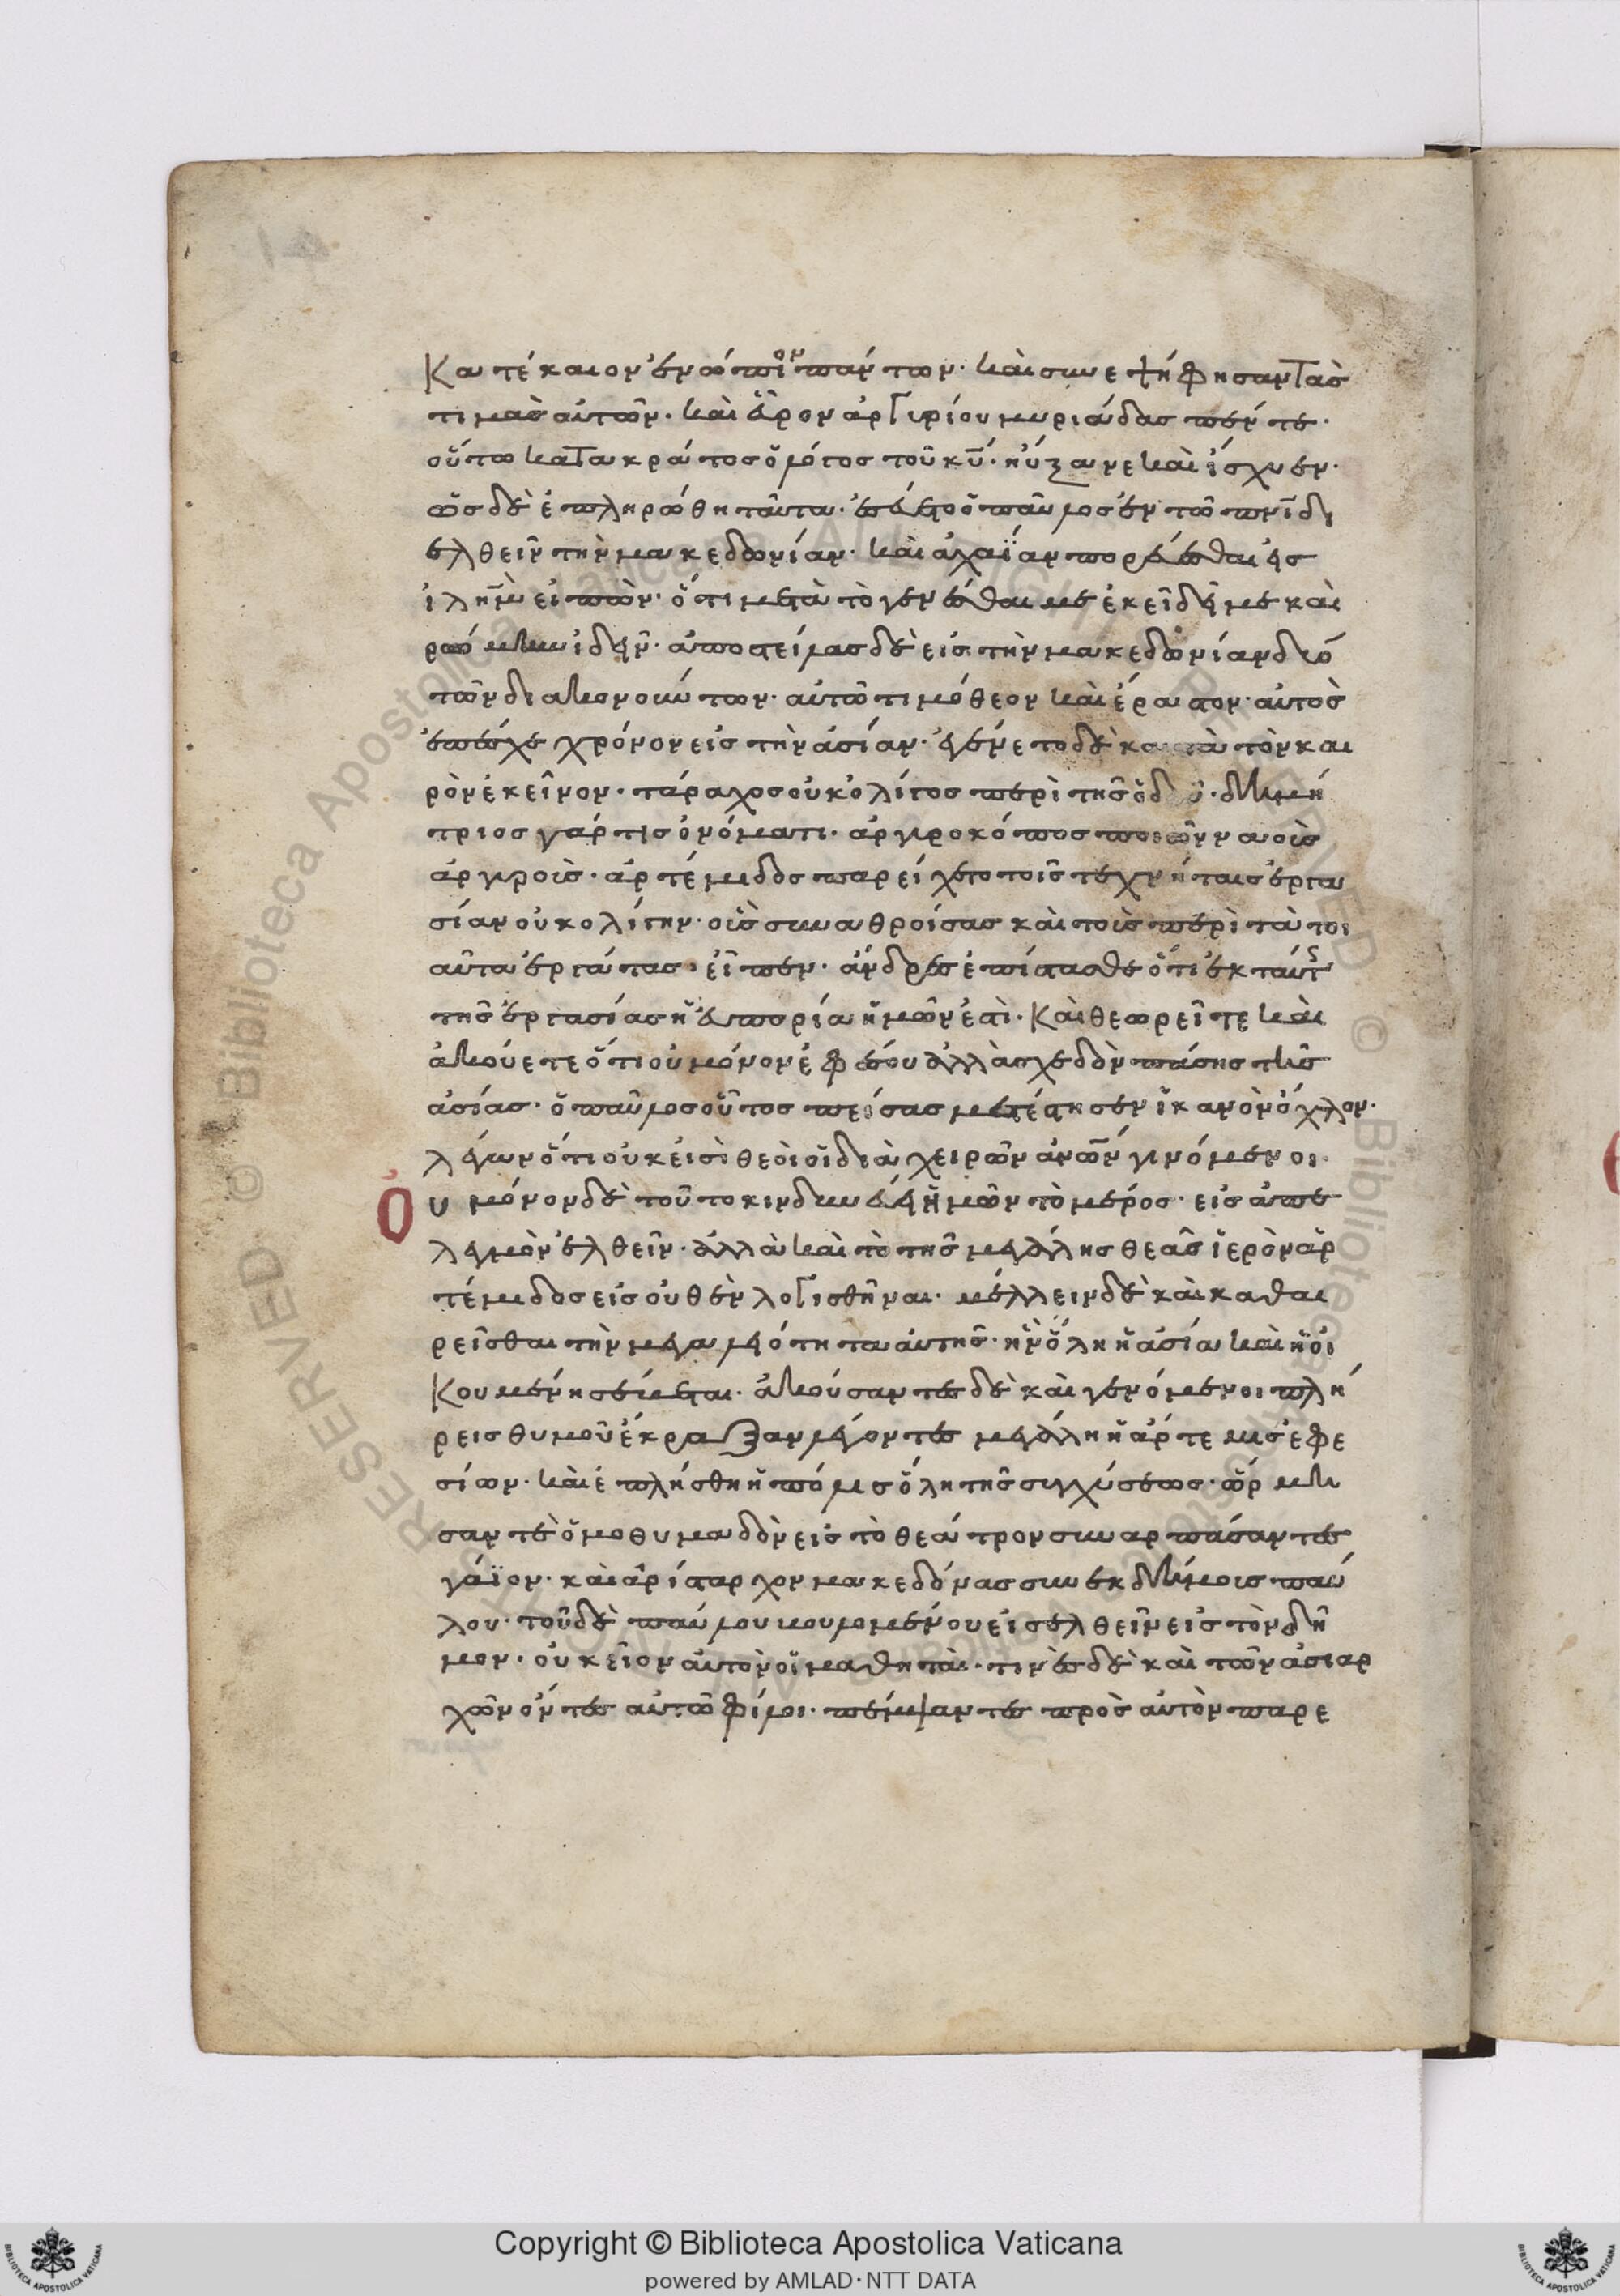 Κατέκαιον ἐνώπιον πάντων· καὶ συνεψήφησαν τὰς
τιμὰς αὐτῶν· καὶ εὗρον ἀργυρίου μυριάδας πέντε·
οὕτω κατὰ κράτος ὁ λόγος τοῦ κυ̅· ηὔξανε καὶ ἴσχυεν·
ὡς δὲ ἐπληρώθη ταῦτα· ἔθετο ὁ παῦλος ἐν τῶ πνι̅ δι
ελθεῖν τὴν μακεδωνίαν· καὶ ἀχαΐαν πορεύεσθαι εἰς
ιλημ̅ εἰπὼν· ὅτι μετὰ τὸ γενέσθαι με ἐκεῖ δεῖ με καὶ
ρώμην ἰδεῖν· ἀποστείλας δὲ εἰς τὴν μακεδωνίαν δύο
τῶν διακονούντων· αὐτῶ τιμόθεον καὶ ἔραστον· αὐτὸς
ἐπέσχε χρόνον εἰς τὴν ἀσίαν· ἐγένετο δὲ κατὰ τὸν και
ρὸν ἐκεῖνον· τάραχος οὐκ ὀλίγος περὶ τῆς ὁδοῦ· δημή
τριος γάρ τις ὀνόματι· ἀργυροκόπος ποιῶν ναοὺς
ἀργυροὺς· ἀρτέμιδος παρείχετο τοῖς τεχνήταις ἐργα
σίαν οὐκ ὀλίγην· οὓς συναθροίσας καὶ τοὺς περὶ τὰ τοι
αῦτα ἐργάτας· εἶπεν· ἄνδρες ἐπίστασθε ὅτι ἐκ ταύτ
τῆς ἐργασίας ἡ εὐπορία ἡμῶν ἐστὶ· Καὶ θεωρεῖτε καὶ
ἀκούετε ὅτι οὐ μόνον ἐφέσου ἀλλὰ σχεδὸν πάσης τῆς
ἀσίας· ὁ παῦλος οὗτος πείσας μετέστησεν ἱκανὸν ὄχλον·
λέγων ὅτι οὐκ εἰσὶ θεοὶ οἱ διὰ χειρῶν ἀνω̅ν γινόμενοι·
Οὐ μόνον δὲ τοῦτο κινδυνεύει ἡμῶν τὸ μέρος· εἰς ἀπε
λεγμὸν ἐλθεῖν· ἀλλὰ καὶ τὸ τῆς μεγάλης θεᾶς ἱερὸν ἀρ
τέμιδος εἰς οὐθὲν λογισθῆναι· μέλλειν δὲ καὶ καθαι
ρεῖσθαι τὴν μεγαλειότητα αὐτῆς· ἣν ὅλη ἡ ἀσία καὶ ἡ οἰ
Κουμένη σέβεται· ἀκούσαντες δὲ καὶ γενόμενοι πλή
ρεις θυμοῦ ἔκραζαν λέγοντες μεγάλη ἡ ἄρτεμις ἐφε
σίων· καὶ ἐπλήσθη ἡ πόλις ὅλη τῆς συγχύσεως· ὥρμη
σαν τὲ ὁμοθυμαδὸν εἰς τὸ θέατρον συναρπάσαντες
γάϊον· καὶ ἀρίσταρχον μακεδόνας συνεκδήμους παύ
λου· τοῦ δὲ παύλου βουλομένου εἰσελθεῖν εἰς τὸν δῆ
μον· οὐκ εἴων αὐτὸν οἱ μαθηταὶ· τινὲς δὲ καὶ τῶν ἀσιαρ
χῶν ὄντες αὐτῶ φίλοι· πέμψαντες πρὸς αὐτὸν παρε
Copyright © Biblioteca Apostolica Vaticana
powered by AMLAD·NTT DATA